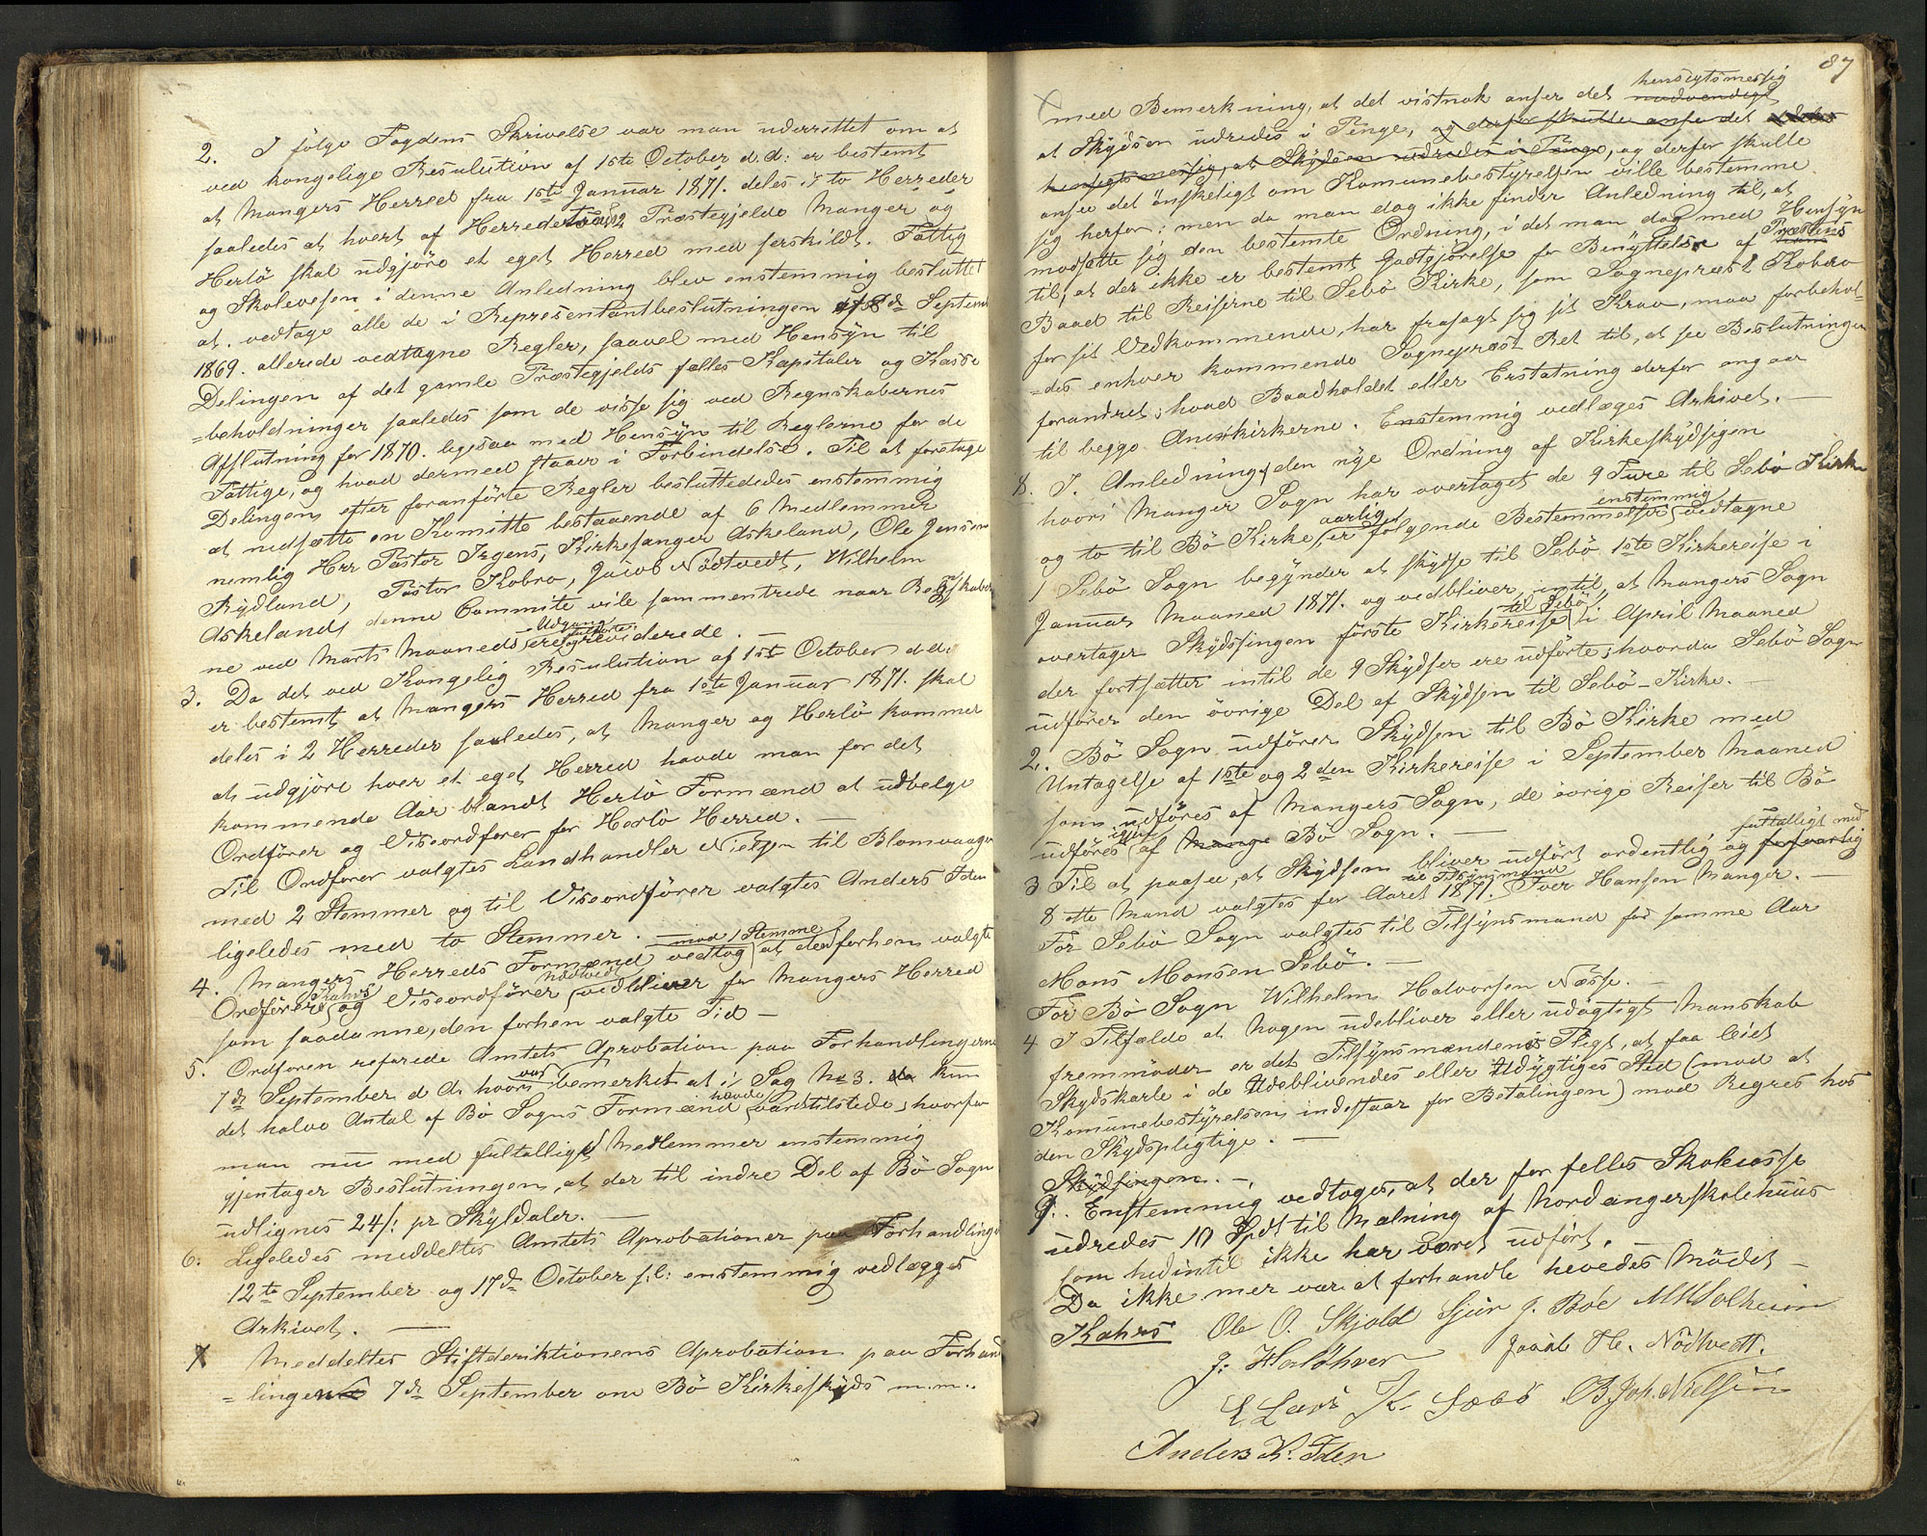 2. I følge Fogdens Skrivelse var man underrettet om at
ved kongelige Resulution af 1ste October d. d: er bestemt
at Mangers Herred fra 1ste Januar 1871. deles i to Herreder
saaledes at hvert af Herredets 2 Præstegjelde Manger og
Herlö skal udgjöre et eget Herred med serskildt Fattig
og Skolevesen i denne Anledning blev enstemmig besluttet
at vedtage alle de i Representantbeslutningen af 8de Septem
1869. allerede vedtagne Regler, saavel med Hensyn til
Delingen af det gamle Præstegjelds fælles Kapitaler og Kasse
=beholdninger saaledes som de visse sig ved Regnskabernes
Afslutning for 1870. ligesaa med Hensyn til Reglerne for de
Fattige, og hvad dermed staar i Forbindelse. Til at foretage
Delingen efter foranförte Regler besluttededes enstemmig
at nedsætte en Komitte bestaaende af 6 Medlemmer
nemlig Hrr Pastor Irgens, Kirkesanger Askeland, Ole Jensen
Rydland, Pastor Kobro, Jacob Nödtvedt, Wilhelm
Askeland, denne Committe vile sammentrede naar Regnskaber
ne ved Marts Maaneds Udgang ere reviderede. —
3. Da det ved Kongelig Resulution af 1st October d. d.
er bestemt at Mangers Herred fra 1ste Januar 1871. skal
deles i 2 Herreder saaledes, at Manger og Herlö kommer
at udgjöre hver et eget Herred havde man for det
kommende Aar blandt Herlö Formænd at udvelge
Ordförer og Viseordförer for Herlö Herred. —
Til Ordförer valgtes Landhandler Nielsen til Blomvaag
med 2 Stemmer og til Viseordförer valgtes Anders Iden
ligeledes med to Stemmer. —
4. Mangers Herreds Formænd vedtog mod 1 Stemme at den forhen valgte
Ordförer Kahrs og Viseordförer Nödtvedt vedbliver for Mangers Herred
som saadanne, den forhen valgte Tid —
5. Ordforen refarede Amtets Aprobation paa Forhandlingerne
7de September d. A. hvori var bemerket at i Sag No 3. kun
det halve Antal af Bö Sogns Formænd havde værettilstede, hvorfor
man nu med fultallige Medlemmer enstemmig
gjentager Beslutningen, at der til indre Del af Bö Sogn
udlignes 24 s: pr Skyldaler. —
6: Ligeledes meddeltes Amtets Aprobationer paa Forhandling
12te September og 17de October s: l: enstemmig vedlægges
Arkivet. —
7 Meddeltes Stiftderiktionens Aprobation paa Forhand
=lingen 7de September om Bö Kirkeskyds m. m.
87
med Bemerkning, at det vistnok anser det nødvendigt hensigtsmessig
at Skydsen udredes i Penge, og derfor skulle anse det
hensigtsmessig, at Skydsen udredes i Penge, og derfor skulle
ansee det önskeligt om Komunebestyrelsen ville bestemme
sig herfor; men da man dog ikke finder Anledning til, at
modsætte sig den bestemte Ordning, i det man dog med Hensyn
til, at der ikke er bestemt Godtgjörelse for Benyttelse af Præstens
Baad til Reiserne til Sebö Kirke, som Sognepræst Kobro
for sit Vedkommende, har frasagt sig sit Krav, maa forbehol=
=des enhver kommende Sognepræst Ret til, at see Beslutningen
forandret, hvad Baadholdet eller Erstatning derfor angaar
til begge Anexkirkerne. Enstemmig vedlæges Arkivet. —
8. I Anledning den nye Ordning af Kirkeskydsen
hvori Manger Sogn har overtaget de 9 Ture til Sebö Kirke
og to til Bö Kirke aarlig, er fölgende Bestemmelser enstemmig vedtagne
1 Sebö Sogn begynder at skydse til Sebö 1ste Kirkereise i
Januar Maaned 1871. og vedbliver, intil, at Mangers Sogn
overtager Skydsingen förste Kirkereise til Sebö i April Maaned
der fortsætter intil de 9 Skydser ere udförte, hvorda Sebö Sogn
udförer den övrige Del af Skydsen til Sebö-Kirke. —
2. Bö Sogn udförer Skydsen til Bö Kirke med
Untagelse af 1ste og 2den Kirkereise i September Maaned
som udföres af Mangers Sogn, de övrige Reiser til Bö
udföres igjen af Mange Bö Sogn. —
3 Til at paase, at Skydsen bliver udfört ordentlig og fultalligt med
8 otte Mand valgtes for Aaret 1871. til Tilsynsmand Iver Hansen Manger. —
For Sebö Sogn valgtes til Tilsynsmand for samme Aar
Mons Monsen Sebö. —
For Bö Sogn Wilhelm Halvorsen Næsse. —
4 I Tilfælde at nogen udebliver eller udögtigt Manskab
fremmöder er det Tilsynsmændenes Pligt, at faa leiet
Skydskarle i de Udeblivendes eller Udygtiges Sted (mod at
Komunebestyrelsen indestaar for Betalingen) mod Regres hos
den Skydspligtige. —
Skydsingen. —
9. Enstemmig vedtoges, at der for felles Skolecasse
udredes 10 Spd til Malning af Nordangerskolehuus
som hedintil ikke har været udfört. —
Da ikke mer var at forhandle hevedes Mödet —
Kahrs Ole O. Skjold Sjur J. Böe
J. Herlöhven Jacob H. Nödtvedt.
E Lars K Sæbö B. Joh. Nielsen
Anders K. Iden